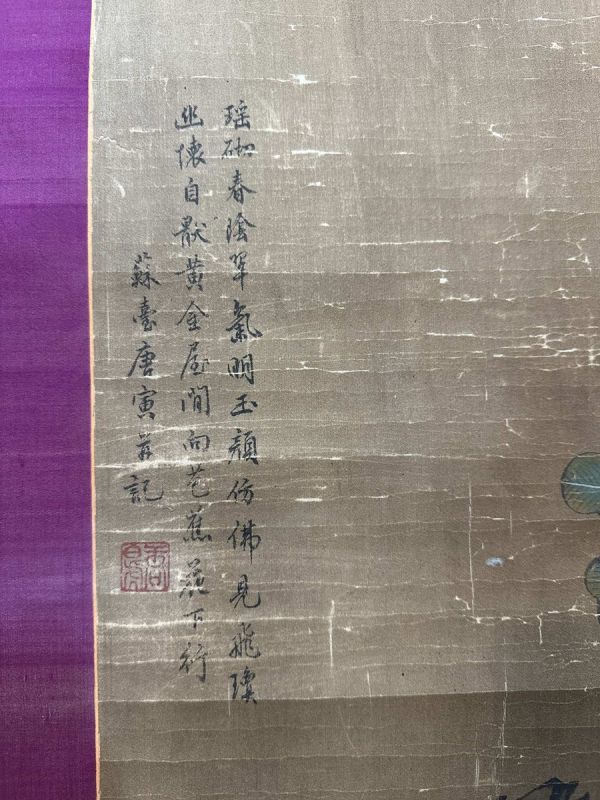 瑶砌春陰翠氣明玉顏仿佛見飛瓊
幽懷自厭黄金屋閒向芭蕉花下行
蘇臺唐寅并記